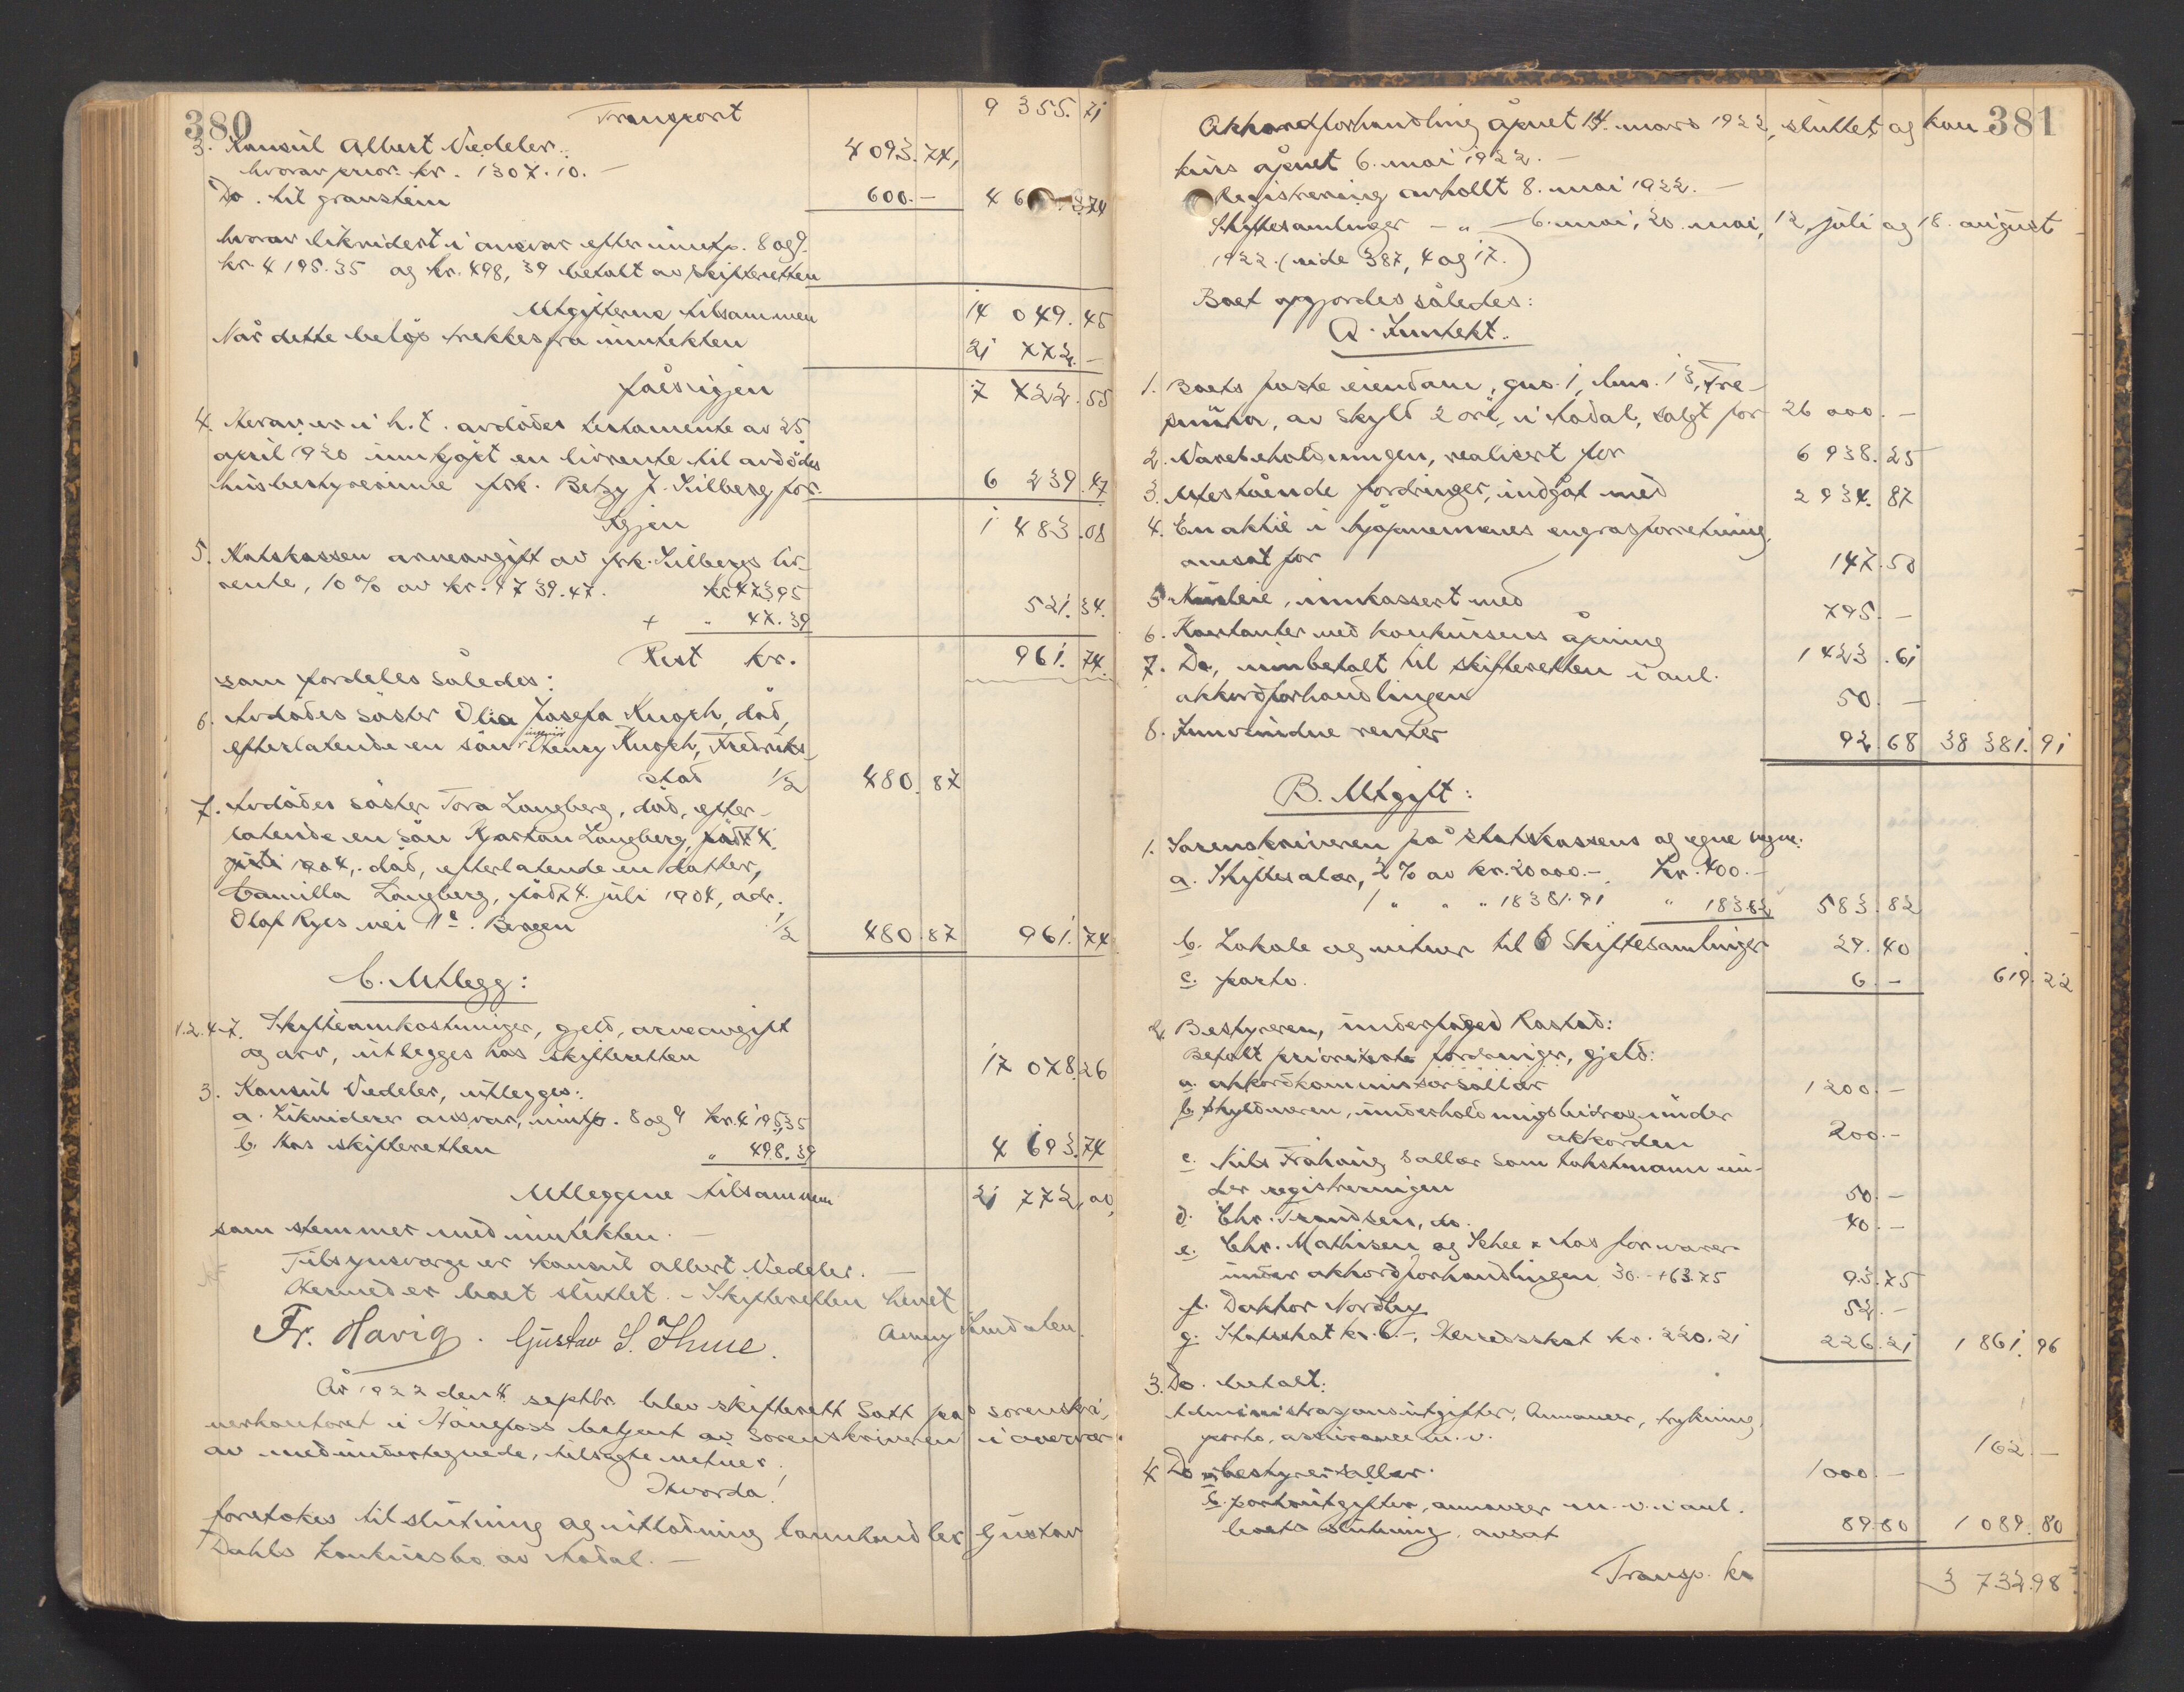 380
Transport 9 355. 71
3. Konsul Albert Viedeler: 4 093. 74,
hvorav prior. kr. 1307.10. —
Do. til gravstein 600. — 4 6 . 74
hvorav likvidert i ansvar efter inntp. 8 og 9.
kr. 4 195.35 og kr. 498,39 betalt av skifteretten
Utgiftene tilsammen 14 049. 45
Når dette beløp trekkes fra inntekten 21 772. —
fåes igjen 7 722. 55
4. Herav er i h.t. avdødes testamente av 25
april 1920 innkjøpt en livrente til avdødes
husbestyrerinne frk. Betzy J. Kilberg for 6 239. 47
Igjen 1 483. 08
5. Statskassen arveavgift av frk. Kilbergs liv-
rente, 10 % av kr. 4739.47. kr. 473,95
+ " 47.39 521. 34.
Rest kr. 961. 74.
som fordeles således:
6. Avdødes søster Olia Josefa Knoph, død,
efterlatende en sønn Henry Knoph, Fredrik-
stad 1/2 480. 87
7. Avdødes søster Tora Langberg, død, efter-
latende en sønn Kjartan Langberg, født 4.
juli 1904, død, efterlatende en datter,
Camilla Langberg, født 4. juli 1904, adr.
Olaf Ryes vei 11c. Bergen 1/2 480. 87 961. 74
C. Utlegg:
1.2.4-7. Skifteomkostninger, gjeld, arveavgift
og arv, utlegges hos skifteretten 17 078. 26
3. Konsul Viedeler, utlegges:
a. Likviderer ansvar, inntp. 8 og 9 kr. 4 195,35
b. Hos skifteretten " 498.39 4 693. 74
Utleggene tilsammen 21 772. 00
som stemmer med inntekten. —
Tilsynsverge er konsul Albert Viedeler. —
Hermed er boet sluttet. – Skifteretten hevet
Fr. Havig. Gustav S. Ihme. Amny
År 1922 den 4 septbr. blev skifterett satt på sorenskri-
verkontoret i Hønefoss betjent av sorenskriveren i overvær
av medundertegnede, tilsagte vidner.
Hvorda!
foretokes til slutning og utlodning landhandler Gustav
Dahls konkursbo av Aadal. —
381
Akkordforhandling åpnet 14. mars 1922, sluttet og kon-
kurs åpnet 6. mai 1922. —
Registrering avholdt 8. mai 1922. —
Skiftesamlinger — " — 6. mai, 20. mai, 12. juli og 18. august
1922. (vide 387, 4 og 17.)
Boet opgjordes således:
A. Inntekt.
1. Boets faste eiendom, gno. 1, bno. 13, Fre-
, av skyld 2 øre, i Aadal, solgt for 26 000. —
2. Varebeholdningen, realisert for 6 938. 25
3. Utestående fordringer, indgåt med 2 934. 87
4. En aktie i Kjøpmennenes engrosforretning,
ansat for 147. 50
5. Husleie, innkassert med 795. —
6. Kontanter ved konkursens åpning 1 423. 61
7. Do, innbetalt til skifteretten i anl.
akkordforhandlingen 50. —
8. Innvundne renter 92. 68 38 381. 91
B. Utgift:
1. Sorenskriveren på statskassens og egne vegne:
a. Skiftesalær, 2 % av kr. 20000.— Kr. 400.—
1 " " " 18381.91 " 183.82 583. 82
b. Lokale og vitner til 6 skiftesamlinger 29. 40
c. porto. 6. — 619. 22
2. Bestyreren, underfoged Rastad:
Betalt prioriterte fordringer, gjeld:
a. akkordkommissersallær 1 200. —
b. skyldneren, underholdningsbidrag under
akkorden 200. —
c. Nils Fråhaug sallær som takstmann un-
der registreringen 50. —
d. Chr. Trondsen, do. 40. —
e. Chr. Mathisen og Schee & Aas for varer
under akkordforhandlingen 30.- + 63.75 93. 75
f. Doktor Nordby 52. —
g. Statsskat kr. 6.—, Herredsskat kr. 220.21 226. 21 1 861. 96
3. Do. betalt:
Administrasjonsutgifter, Annoncer, trykning,
porto, assurance m. v. 162. —
4. Do a. bestyrersallær. 1000. —
b. portoutgifter, annonser m. v. i anl.
boets slutning, ansat 89. 80 1 089. 80
Transp. kr 3 732. 98